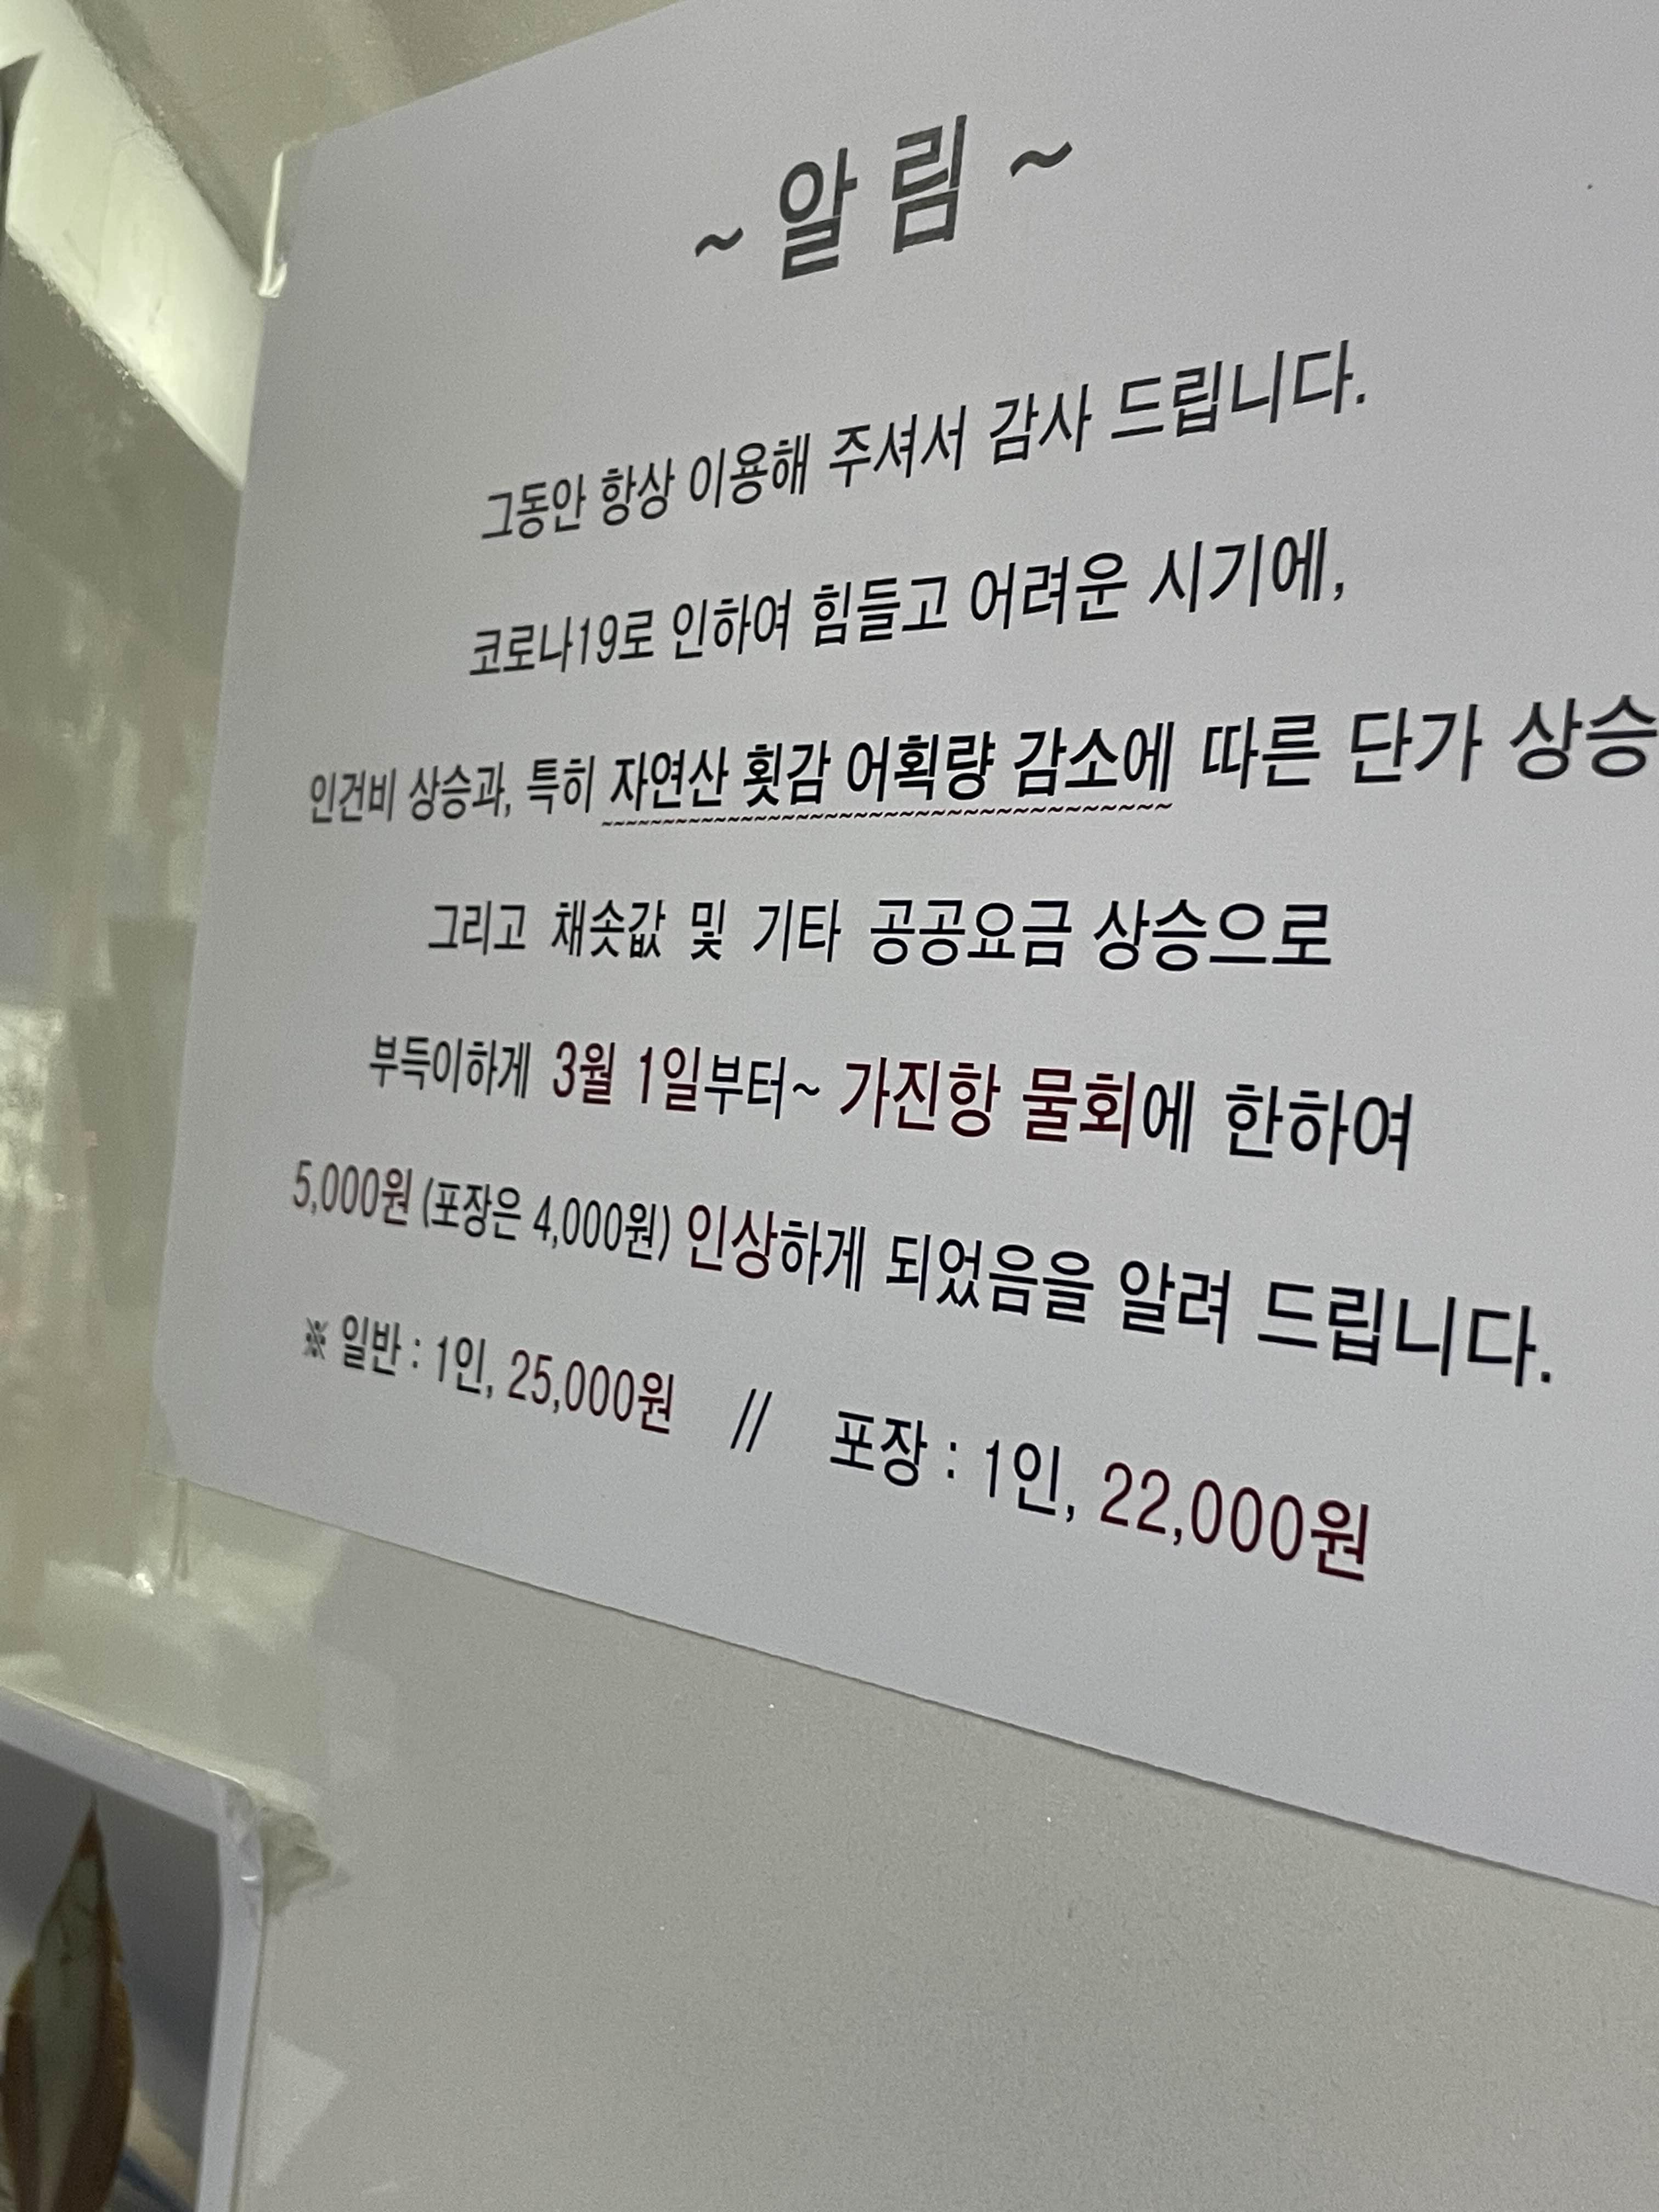 ~ 알 림 ~
그동안 항상 이용해 주셔서 감사 드립니다.
코로나19로 인하여 힘들고 어려운 시기에,
인건비 상승과, 특히 자연산 횟감 어획량 감소에 따른 단가 상승
그리고 채솟값 및 기타 공공요금 상승으로
부득이하게 3월 1일부터~ 가진항 물회에 한하여
5,000원 (포장은 4,000원) 인상하게 되었음을 알려 드립니다.
※ 일반 : 1인, 25,000원 // 포장 : 1인, 22,000원